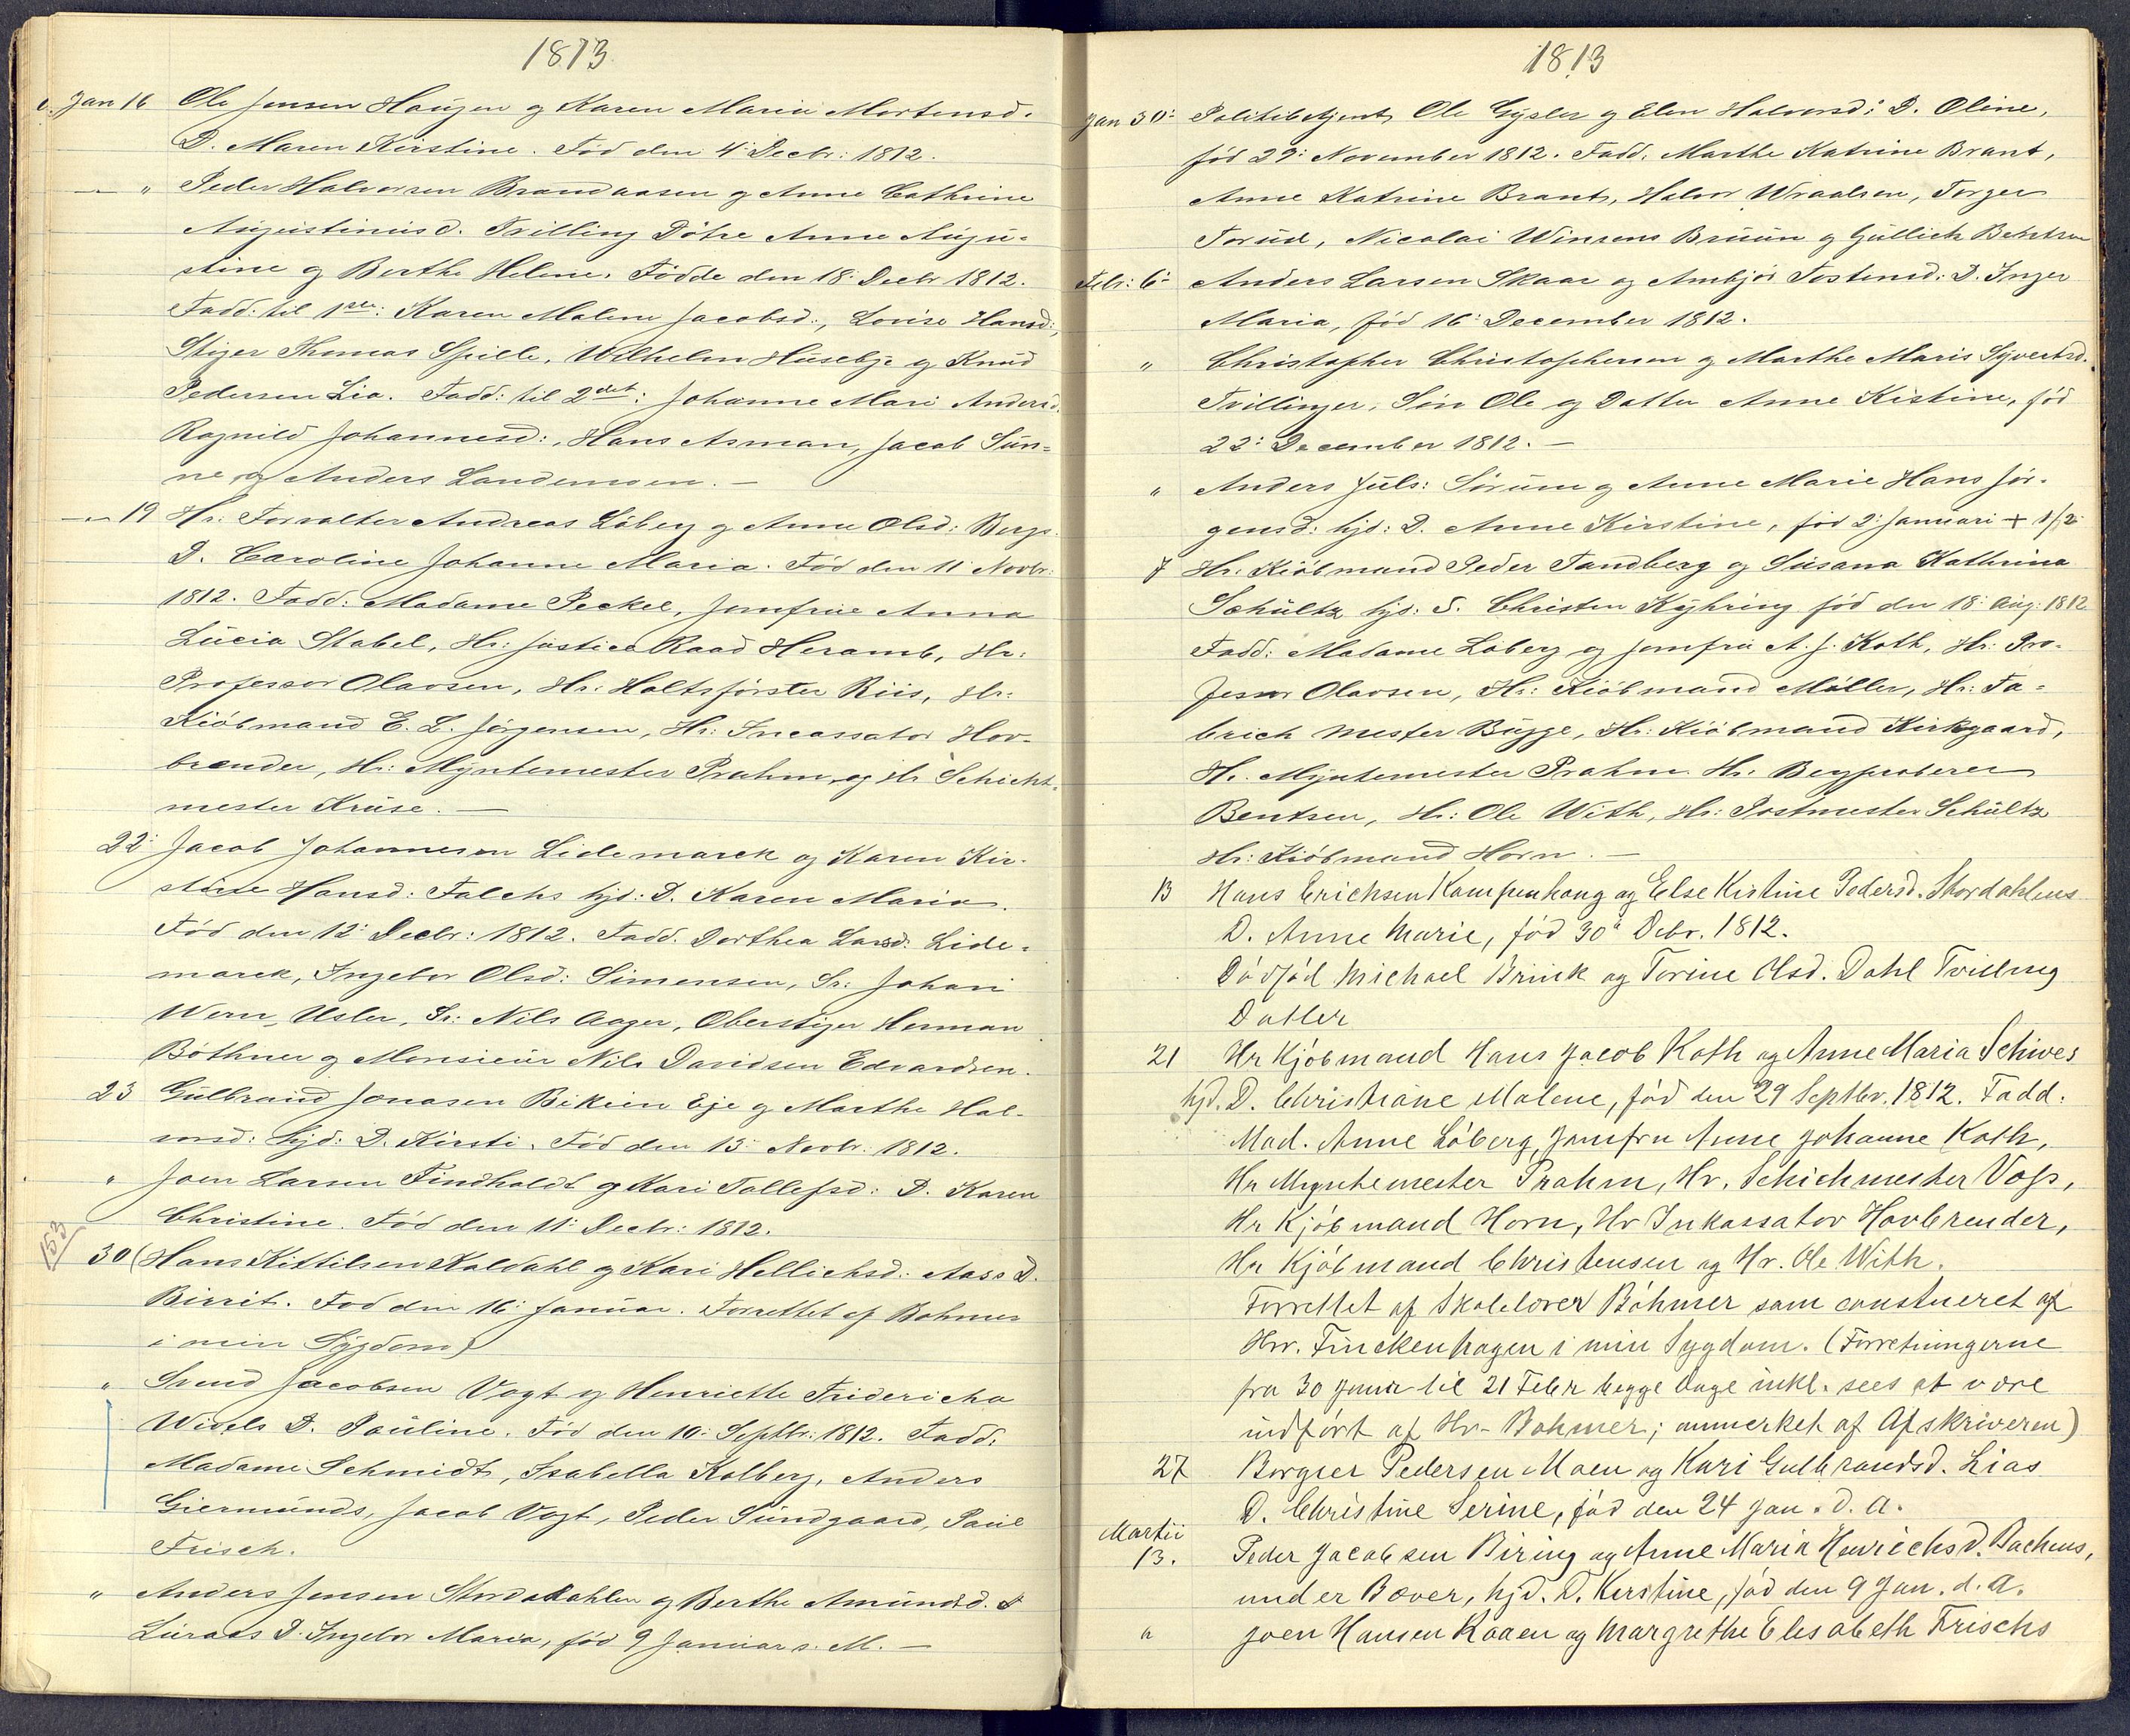 1813
Jan 16 Ole Jensen Haugen og Karen Marie Mortensd.
D. Maren Kirstine. Fød den 4: Decbr: 1812.
" Peder Halvorsen Brandaasen og Anne Cathrine
Augustinusd. Tvilling Døtre Anne Augu-
stine og Berthe Helene. Fødde den 18: Decbr 1812.
Fadd: til 1ste: Karen Malene Jacobsd:, Lovise Hansd:,
Stiger Thomas Spille, Wilhelm Huseby og Knud
Pedersen Lia. Fadd: til 2det: Johanne Mari Andersd.
Ragnild Johannesd:, Hans Asman, Jacob Sun-
ne, og Anders Landemoen. —
19 Hr: Forvalter Andreas Løberg og Anne Olsd: Bergs
D. Caroline Johanne Maria. Fød den 11 Novbr:
1812. Fadd: Madame Peckel, Jomfrue Anna
Lucia Stabel, Hr: Justice Raad Heramb, Hr:
Professor Olavsen, Hr: Holtsförster Riis, Hr:
Kiöbmand E. L. Jørgensen, Hr: Incassator Hov-
brender, Hr: Myntemester Prahm, og Hr Schicht-
mester Kruse. —
22: Jacob Johannesen Lidemarck og Karen Kir-
stine Hansd: Falchs hjd: D. Karen Maria.
Fød den 12: Decbr: 1812. Fadd. Dorthea Larsd: Lide-
marck, Ingebor Olsd: Simensen, Sr: Johan
Wern, Usler, Sr: Nils Aager, Oberstiger Herman
Bøthner og Monsieur Nils Davidsen Edvardsen.
23 Gulbrand Jonasen Bikien Eje og Marthe Hal-
vorsd: hjd: D. Kirsti. Fød den 13: Novbr: 1812.
" Joen Larsen Findhaldt og Kari Tollefsd: D. Karen
Christine. Fød den 11: Decbr: 1812.
153
30 (Hans Kittilsen Kaldahl og Kari Hellichsd: Aass D.
Birrit. Fød den 16: Januar. Forrettet af Bøhmer
i min Sygdom)
" Svend Jacobsen Vogt og Henriette Fridericha
Widels D. Pauline. Fød den 10: Septbr: 1812. Fadd:
Madame Schmidt, Isabella Kolberg, Anders
Giermunds, Jacob Vogt, Peder Sundgaard, Paul
Frisch.
" Anders Jensen Stordahlen og Berthe Amundsd.
Luraas D. Ingebor Maria, fød 9 Januar s. M. —
1813
Jan 30: Politibetjent Ole Gysler og Elen Halvorsd: D. Oline,
fød 29: November 1812. Fadd. Marthe Katrine Brant,
Anne Katrine Brant, Halvor Wraalsen, Torger
Torud, Nicolai Winrens Bruun og Gullich Bentsen
Febr: 6: Anders Larsen Skaar og Ambjør Tostensd: D. Inger
Maria, fød 16: December 1812.
" Christopher Christophersen og Marthe Maris Syvertsd.
Tvillinger, Søn Ole og Datter Anne Kistine, fød
22: December 1812. —
" Anders Juls: Sørum og Anne Marie Hans Jør-
gensd: hjd: D. Anne Kirstine, fød 2: Januari + 8/2:
7 Hr: Kiöbmand Peder Tandberg og Susana Kathrina
Schültz hjd: S. Christen Kyhring fød den 18: Aug: 1812
Fadd: Madame Løberg og Jomfru A. J. Koth, Hr: Pro-
fessor Olavsen, Hr: Kiöbmand Møller, Hr: Fa-
brich Mester Bugge, Hr: Kiöbmand Kirkgaard,
Hr. Myntemester Prahm. Hr. Bergproberer
Bentsen, Hr: Ole With, Hr: Postmester Schültz
Hr: Kiöbmand Horn. —
13 Hans Erichsen Kampenhaug og Else Kistine Pedersd. Stordahlens
D. Anne Marie, fød 30 Debr. 1812.
Dødfød Michael Brink og Torine Olsd. Dahl Tvilling
Datter
21 Hr Kjøbmand Hans Jacob Koth og Anne Maria Schives
hjd. D. Christiane Malene, fød den 29 Septbr. 1812. Fadd:
Mad. Anne Løberg, Jomfru Anne Johanne Koth,
Hr Myntemester Prahm, Hr. Schichmester Vogs,
Hr Kjøbmand Horn, Hr Inkassator Hovbrender,
Hr Kjøbmand Christensen og Hr. Ole With.
Forrettet af Skolelærer Bøhmer som constueret af
Hrr. Finckenhagen i min Sygdom. (Forretningerne
fra 30 Januar til 21 Febr begge Dage inkl. sees at være
indført af Hr. Bøhmer; anmerket af Afskriveren)
27 Borgner Pedersen Moen og Kari Gulbrandsd. Lias
D. Christine Serine, fød den 24 Jan. d. A.
Martii
13. Peder Jacobsen Biring og Anne Maria Henrichsd. Bachens,
under Bæver, hjd. D. Kerstine, fød den 9 Jan. d. A.
" Joen Hansen Kaaen og Margrethe Elesabeth Frischs